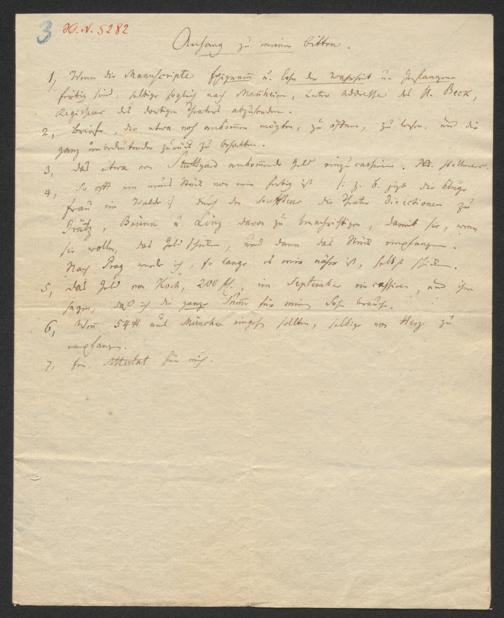 3 H.N. 5282
Anhang zu meinen bitten.
1, Wenn die Manuscripte u. Lohn der Wahrheit u. Gefangene
fertig sind, selbige sogleich nach Manheim, unter addresse des H. Beck,
Regisseur des dortigen Theaters abzusenden.
2, Briefe, die etwa noch ankommen mögten, zu öffnen, zu lesen, und die
ganz unbedeutenden zurück zu behalten.
3, das etwa von Stuttgard ankommende Geld einzucassiren.
4, So oft ein neues Stück von mir fertig ist /: z. b. jezt die kluge
Frau im Walde :/ durch den Souffleur die Theater Directionen zu
Brünn u Linz davon zu benachrichtigen, damit sie, wenn
sie wollen, das Geld schicken, und dann das Stück empfangen.
Nach Prag werde ich, so lange es mir näher ist, selbst schicken.
5, das Geld von Koch, 200 fl., im September einzucassiren, und ihm
sagen, daß ich die ganze Summe für meinen Sohn brauche.
6, Wenn 54 # aus München eingehn sollten, selbige von Herz zu
empfangen.
7, Ein Attestat für mich.